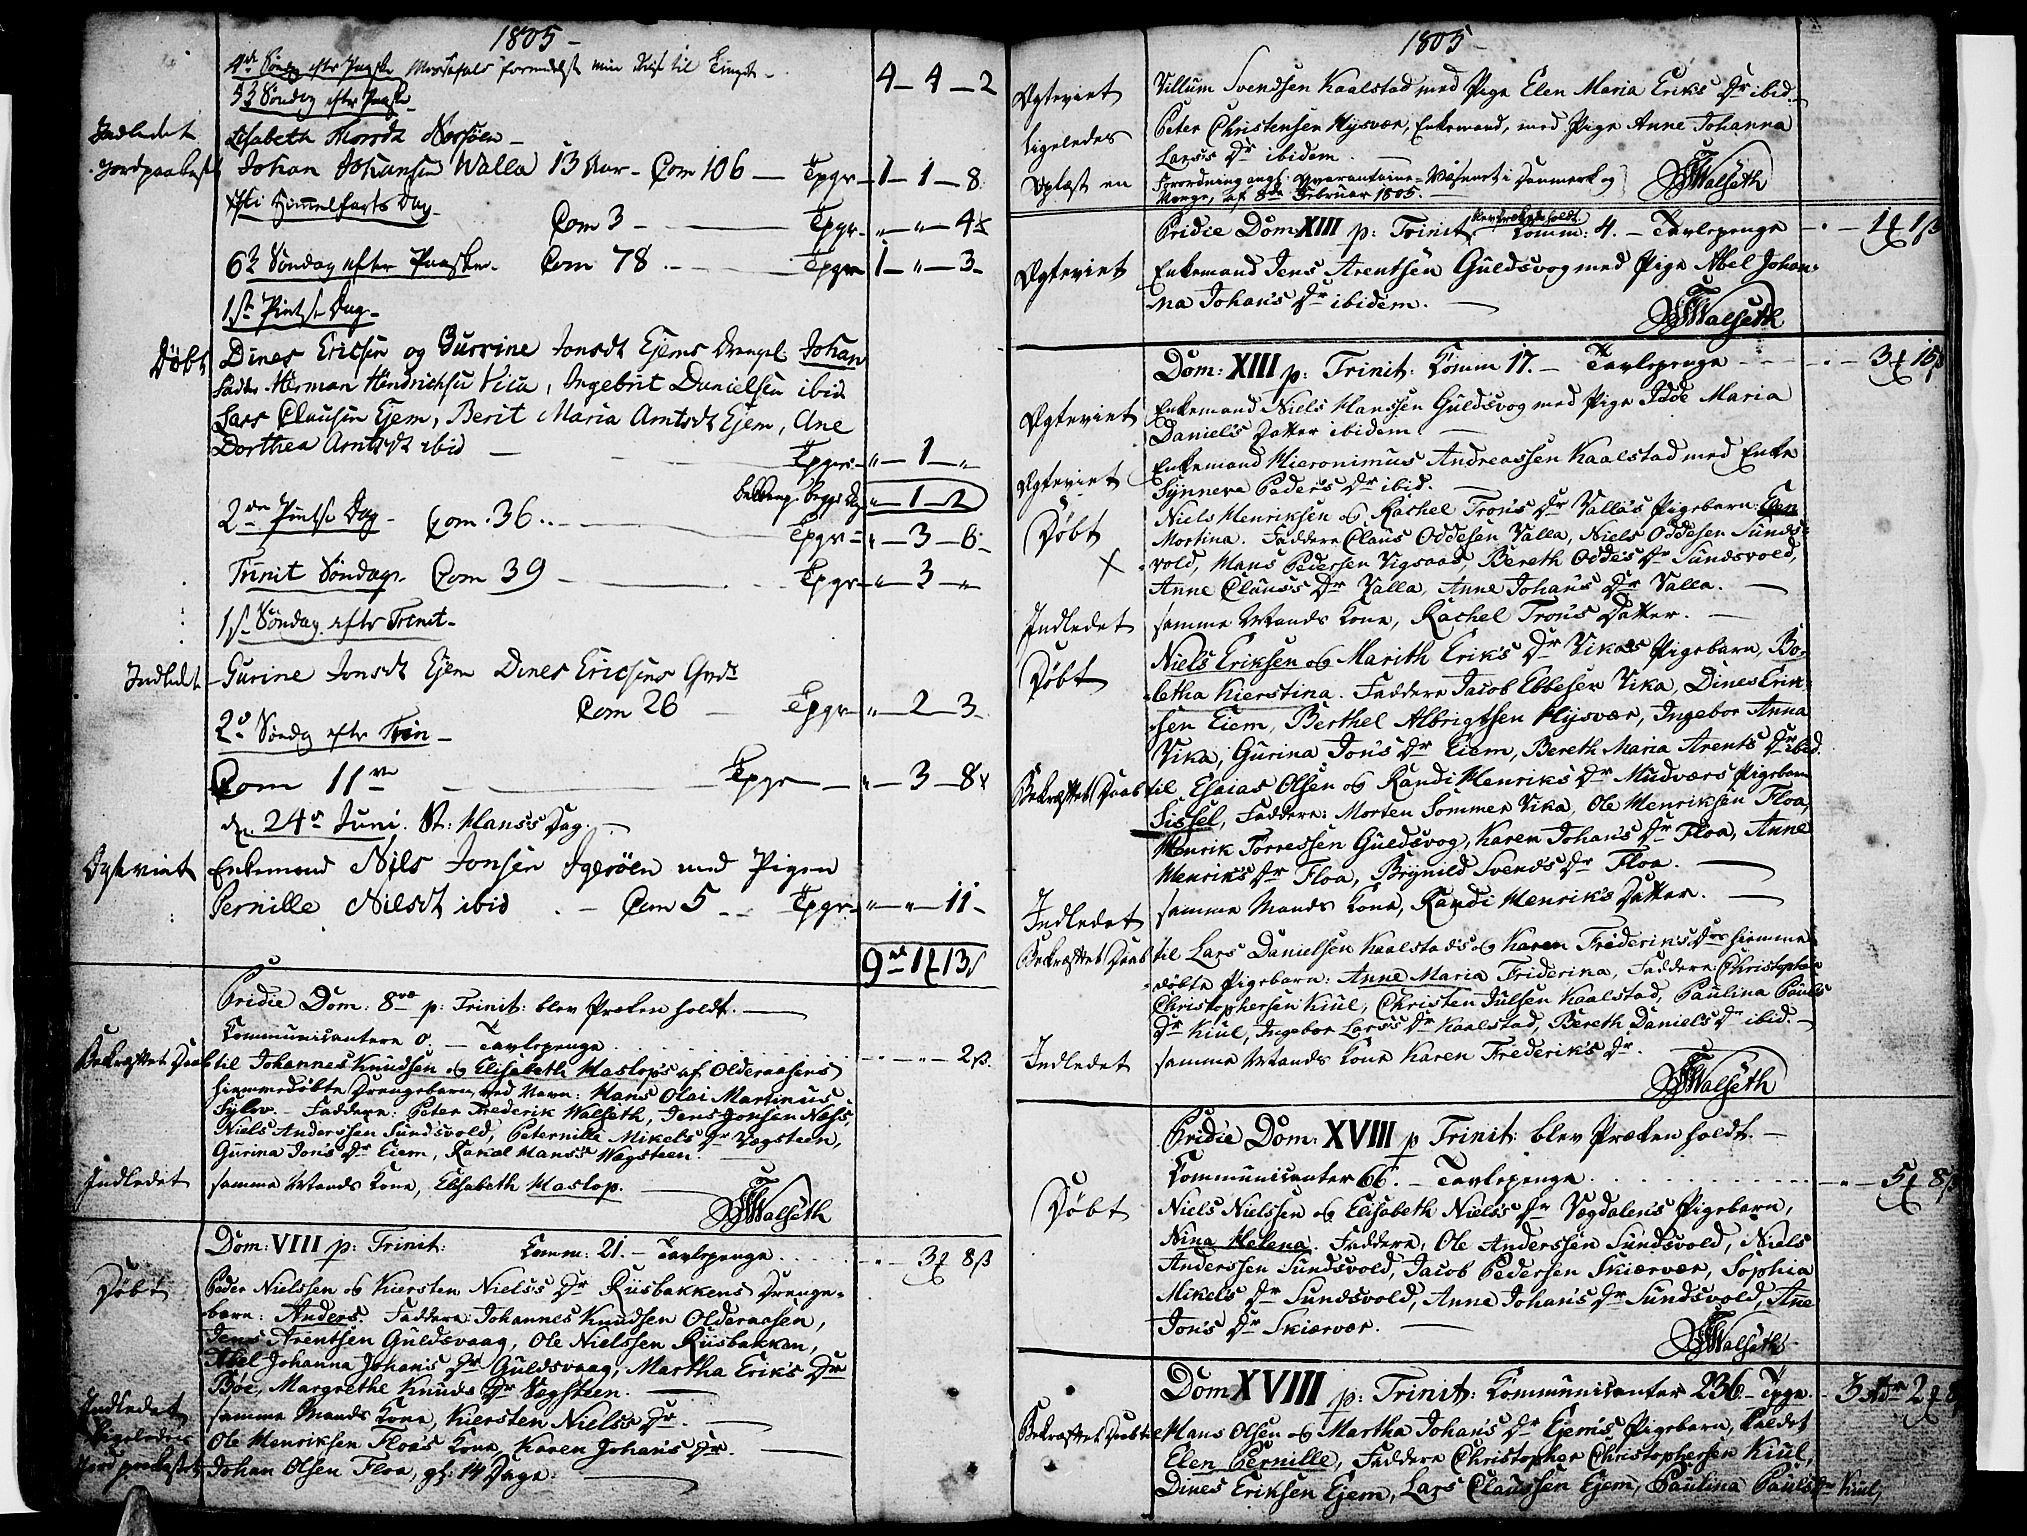 1805 -
4de Søndag efter Paaske Messefald formedelst min Reise til Tinget -
4 - 4 - 2
5te Søndag efter Paaske
Indledet Lisabeth Morrdt
Jordpaakast Johan Johansen Walla 13 Aar - Com 106 - Tpgr - 1 - 1 - 8
Xsti Himmelfarts Dag -
Com 3 - Tpgr - " - " - 4
6te Søndag efter Paaske - Com 78 - Tpgr - 1 - " - 3 -
1ste Pintse Dag -
Døbt Dines Ericsen og Gurrine Jonsdt Ejems Drengeb Johan
Fadd: Herman Hindrichsen Vica, Ingebrit Danielsen ibid
Lars Clausen Ejem, Berit Maria Arntsdt Ejem, Ane
Dorthea Arntsdt ibid
Tpgr - " - 1 - "
begge Dag " - 1 - 2
2den Pintse Dag - Com 36 - Tpgr - " - 3 - 6 -
Trinit Søndag - Com 39 - Tpgr - " - 3 - "
1ste Søndag efter Trinit -
Indledet Gurine Jonsdt Ejem Dines Ericsens
Com 26 - Tpgr - " - 2 - 3 -
2den Søndag efter Trin -
Com 11 - Tpgr - " - 3 - 8
den 24de Juni. St: Hans's Dag. -
Ægteviet Enkemand Nils Jonsen Igerøen med Pigen
Pernille Nilsdt ibid - Com 5 - Tpgr - " - " - 11 -
9 rd 1 f 13 s
Pridie Dom: 8va p: Trinit: blev Præken holdt. -
Kommunicantere 0. - Tavlepenge - 2 ß.
Bekræftet Daab til Johannes Knudsen og Elisabeth Haslops af Olderaasens
hiemmedøbte Drengebarn, ved Navn: Hans Olai Martinus
Sylov. - Faddere: Peter Frederik Walseth, Jens Jonsen Næss,
Niels Anderssen Sundsvold, Peternille Mikels Dr Vægsteen,
Gurina Jons Dr Eiem, Rakel Hans's Wægsteen. -
Indledet samme Mands Kone, Elisabeth Haslop. -
Walseth
Dom: VIII p: Trinit: Komm: 21. - Tavlepenge - 3 f 8 ß
Døbt Peder Nielssen og Kiersten Niels's Dr Riisbakkens Drenge-
barn: Anders. Faddere: Johannes Knudsen Olderaasen,
Jens Arentsen Guldsvaag, Ole Nielssen Riisbakken,
Abel Johanna Johan's Dr Guldsvaag, Martha Erik's Dr
Bøe, Margrethe Knuds Dr Vægsteen. -
Indledet samme Mands Kone, Kiersten Niels's Dr. -
Ligeledes Ole Henriksen Floa's Kone, Karen Johan's Dr. -
Jord paakastet Johan Olsen Floa, gl: 14 Dage. -
1805 -
Ægteviet Villum Svendsen Kaalstad med Pige Elen Maria Eriks Dr ibid. -
ligeledes Peter Christensen Hysvær, Enkemand, med Pige Anne Johanna
Lars's Dr ibidem. -
Oplæst en Forordning ang: Qvarantaine-Væsenet i Danmark og
Norge, af 8de Februar 1805. -
Walseth
Pridie Dom: XIII p: Trinit: blev Præken holdt. Komm: 4. - Tavlepenge - 1 f 1 ß
Ægteviet Enkemand Jens Arentsen Guldsvog med Pige Abel Johan-
-na Johan's Dr ibidem. -
Walseth
Dom: XIII p: Trinit: Komm 17. - Tavlepenge - 3 f 15 ß
Ægteviet Enkemand Niels Hanssen Guldsvog med Pige Idde Maria
Daniels Datter ibidem -
Ægteviet Enkemand Hieronimus Andreassen Kaalstad med Enke
Synneve Peder's Dr ibid. -
Døbt Niels Henriksen og Rachel Trons Dr Valla's Pigebarn: Elen
Martina. Faddere Claus Oddesen Valla, Niels Oddesen Sunds-
X vold, Hans Pedersen Vigsaas, Bereth Oddes Dr Sundsvold,
Anne Claus's Dr Valla, Anne Johan's Dr Valla. -
Indledet samme Mands Kone, Rachel Tron's Datter. -
Døbt Niels Eriksen og Marith Erik's Dr Vikas Pigebarn, Bo-
-letha Kierstina. Faddere Jacob Ebbesen Vika, Dines Erik-
-sen Eiem, Berthel Albrigtsen Hysvær, Ingebor Anna
Vika, Gurina Jon's Dr Eiem, Bereth Maria Arents Dr ibid.
Bekræftet Daab til Esaias Olsen og Randi Henrik's Dr Mudværs Pigebarn
Sissel, Faddere: Morten Sommer Vika, Ole Henriksen Floa,
Henrik Torressen Guldsvog, Karen Johan's Dr Floa, Anne
Henrik's Dr Floa, Brynild Svend's Dr Floa. -
Indledet samme Mands Kone, Randi Henrik's Datter. -
Bekræftet Daab til Lars Danielsen Kaalstads og Karen Frideriks Drs hiemme-
døbte Pigebarn: Anne Maria Friderina, Faddere: Christopher
Christophersen Kiul, Christen Julsen Kaalstad, Paulina Pauls
Dr Kiul, Ingebor Lars's Dr Kaalstad, Bereth Daniels Dr ibid. -
Indledet samme Mands Kone Karen Frederik's Dr. -
Walseth
Pridie Dom: XVIII p Trinit: blev Præken holdt. -
Kommunicanter 66. - Tavlepenge - 5 f 8 ß
Døbt Niels Nielssen og Elisabeth Niels's Dr Vægdalens Pigebarn,
Nina Helena. Faddere, Ole Anderssen Sundsvold, Niels
Anderssen Sundsvold, Jacob Pedersen Skiærvær, Sophia
Mikels Dr Sundsvold, Anna Johan's Dr Sundsvold, Ane
Jon's Dr Skiærvær. -
Walseth
Dom XVIII p: Trinit: Kommunicanter 236 - Tpge - 3 Rdr 2 f 8
Bekræftet Daab til Hans Olsen og Martha Johan's Dr Ejem's Pigebarn, kaldet
Elen Pernille, Faddere Christopher Christophersen Kiul,
Dines Eriksen Ejem, Lars Claussen Ejem, Paulina Pauls Dr Kiul,